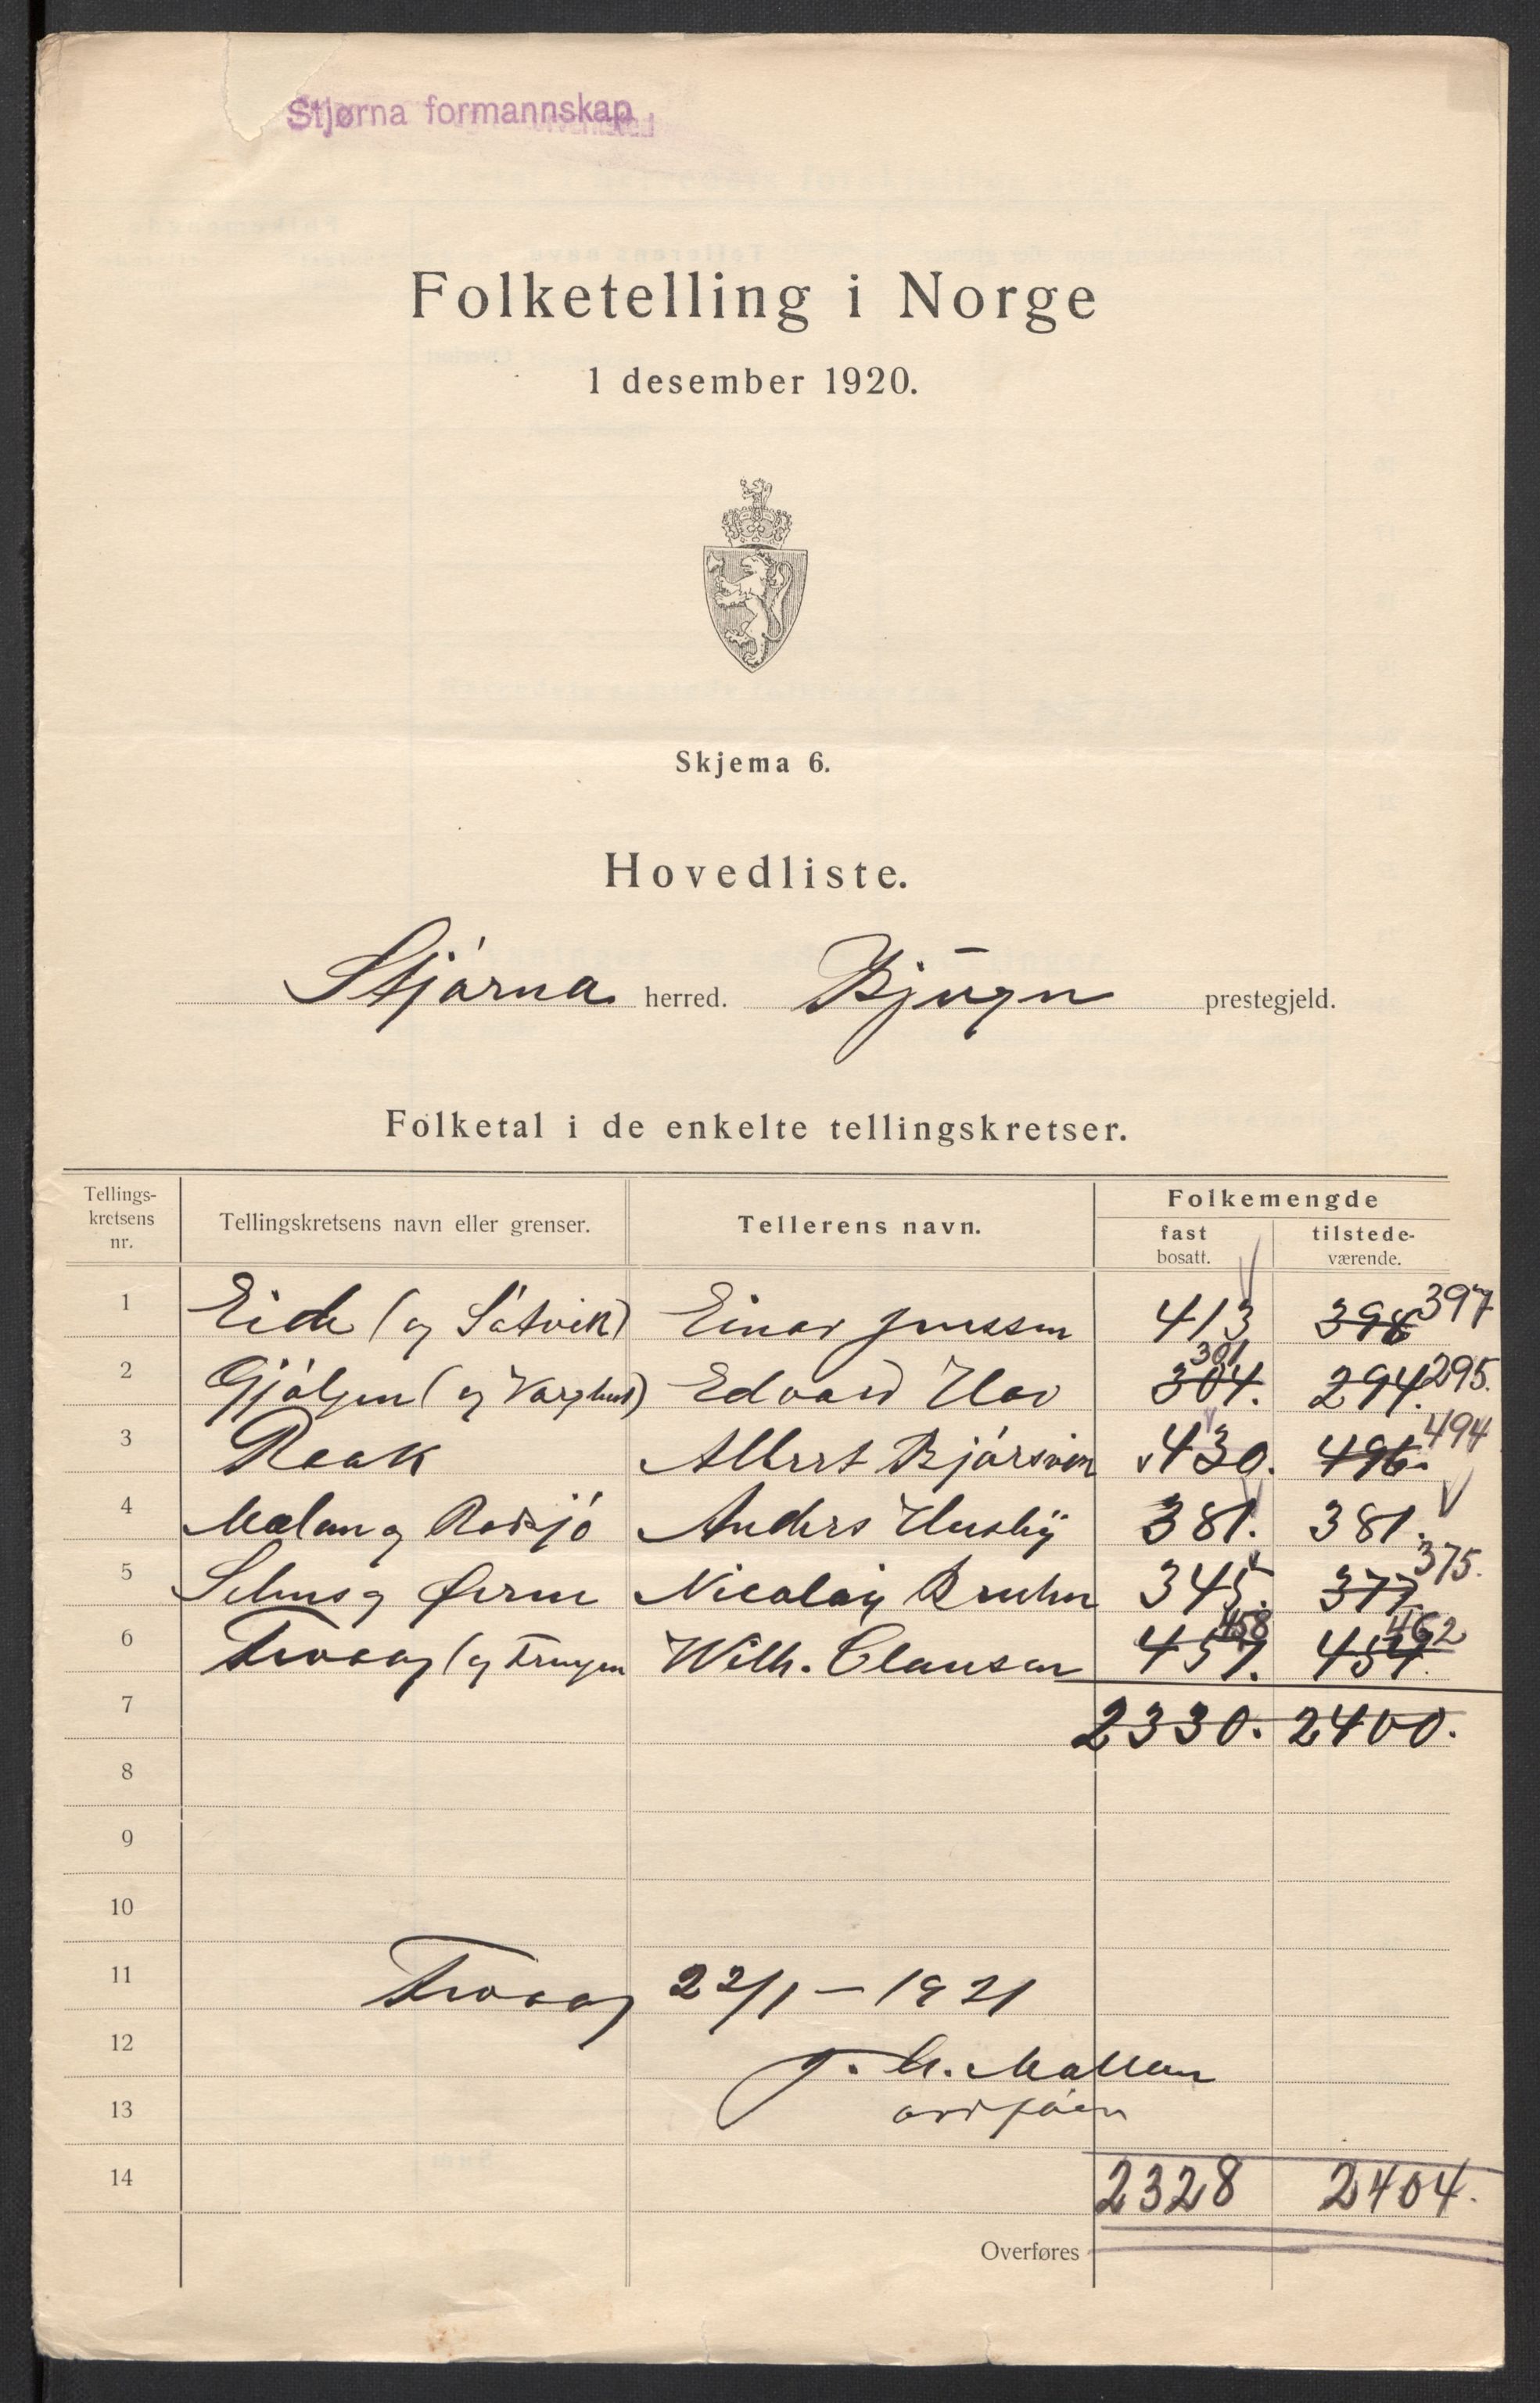 Stjørna formannskap
Folketelling i Norge
1 desember 1920.
Skjema 6.
Hovedliste.
Stjørna herred. Bjugn prestegjeld.
Folketal i de enkelte tellingskretser.
Tellings-
kretsens
nr.
Tellingskretsens navn eller grenser.
Tellerens navn.
Folkemengde
fast
bosatt.
tilstede-
værende.
1 Eide (og Sætvik) Einar Jenssen 413 398 397
2 Gjølgen (og Varghus) Edvard Hov 304. 301 294. 295.
3 Raak Albert 430. 496. 494
4 Mælan og Rødsjø Anders Husby 381. 381.
5 Selnes og Nicolay Bruhn 345. 377 375.
6 (og Wilh. Clausen 457. 458 454. 462
7 2330. 2400.
8
9
10
11 22/1 – 1921
12 Mællan
13 ordfører
14 2328 2404.
Overføres